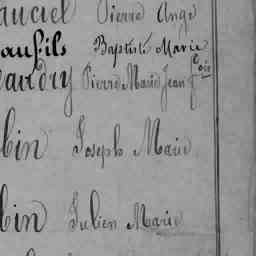 auciel Pierre Ange
aufils Baptiste Marie
Pierre Marie Jean fçois
bin Joseph Marie
bin Julien Marie